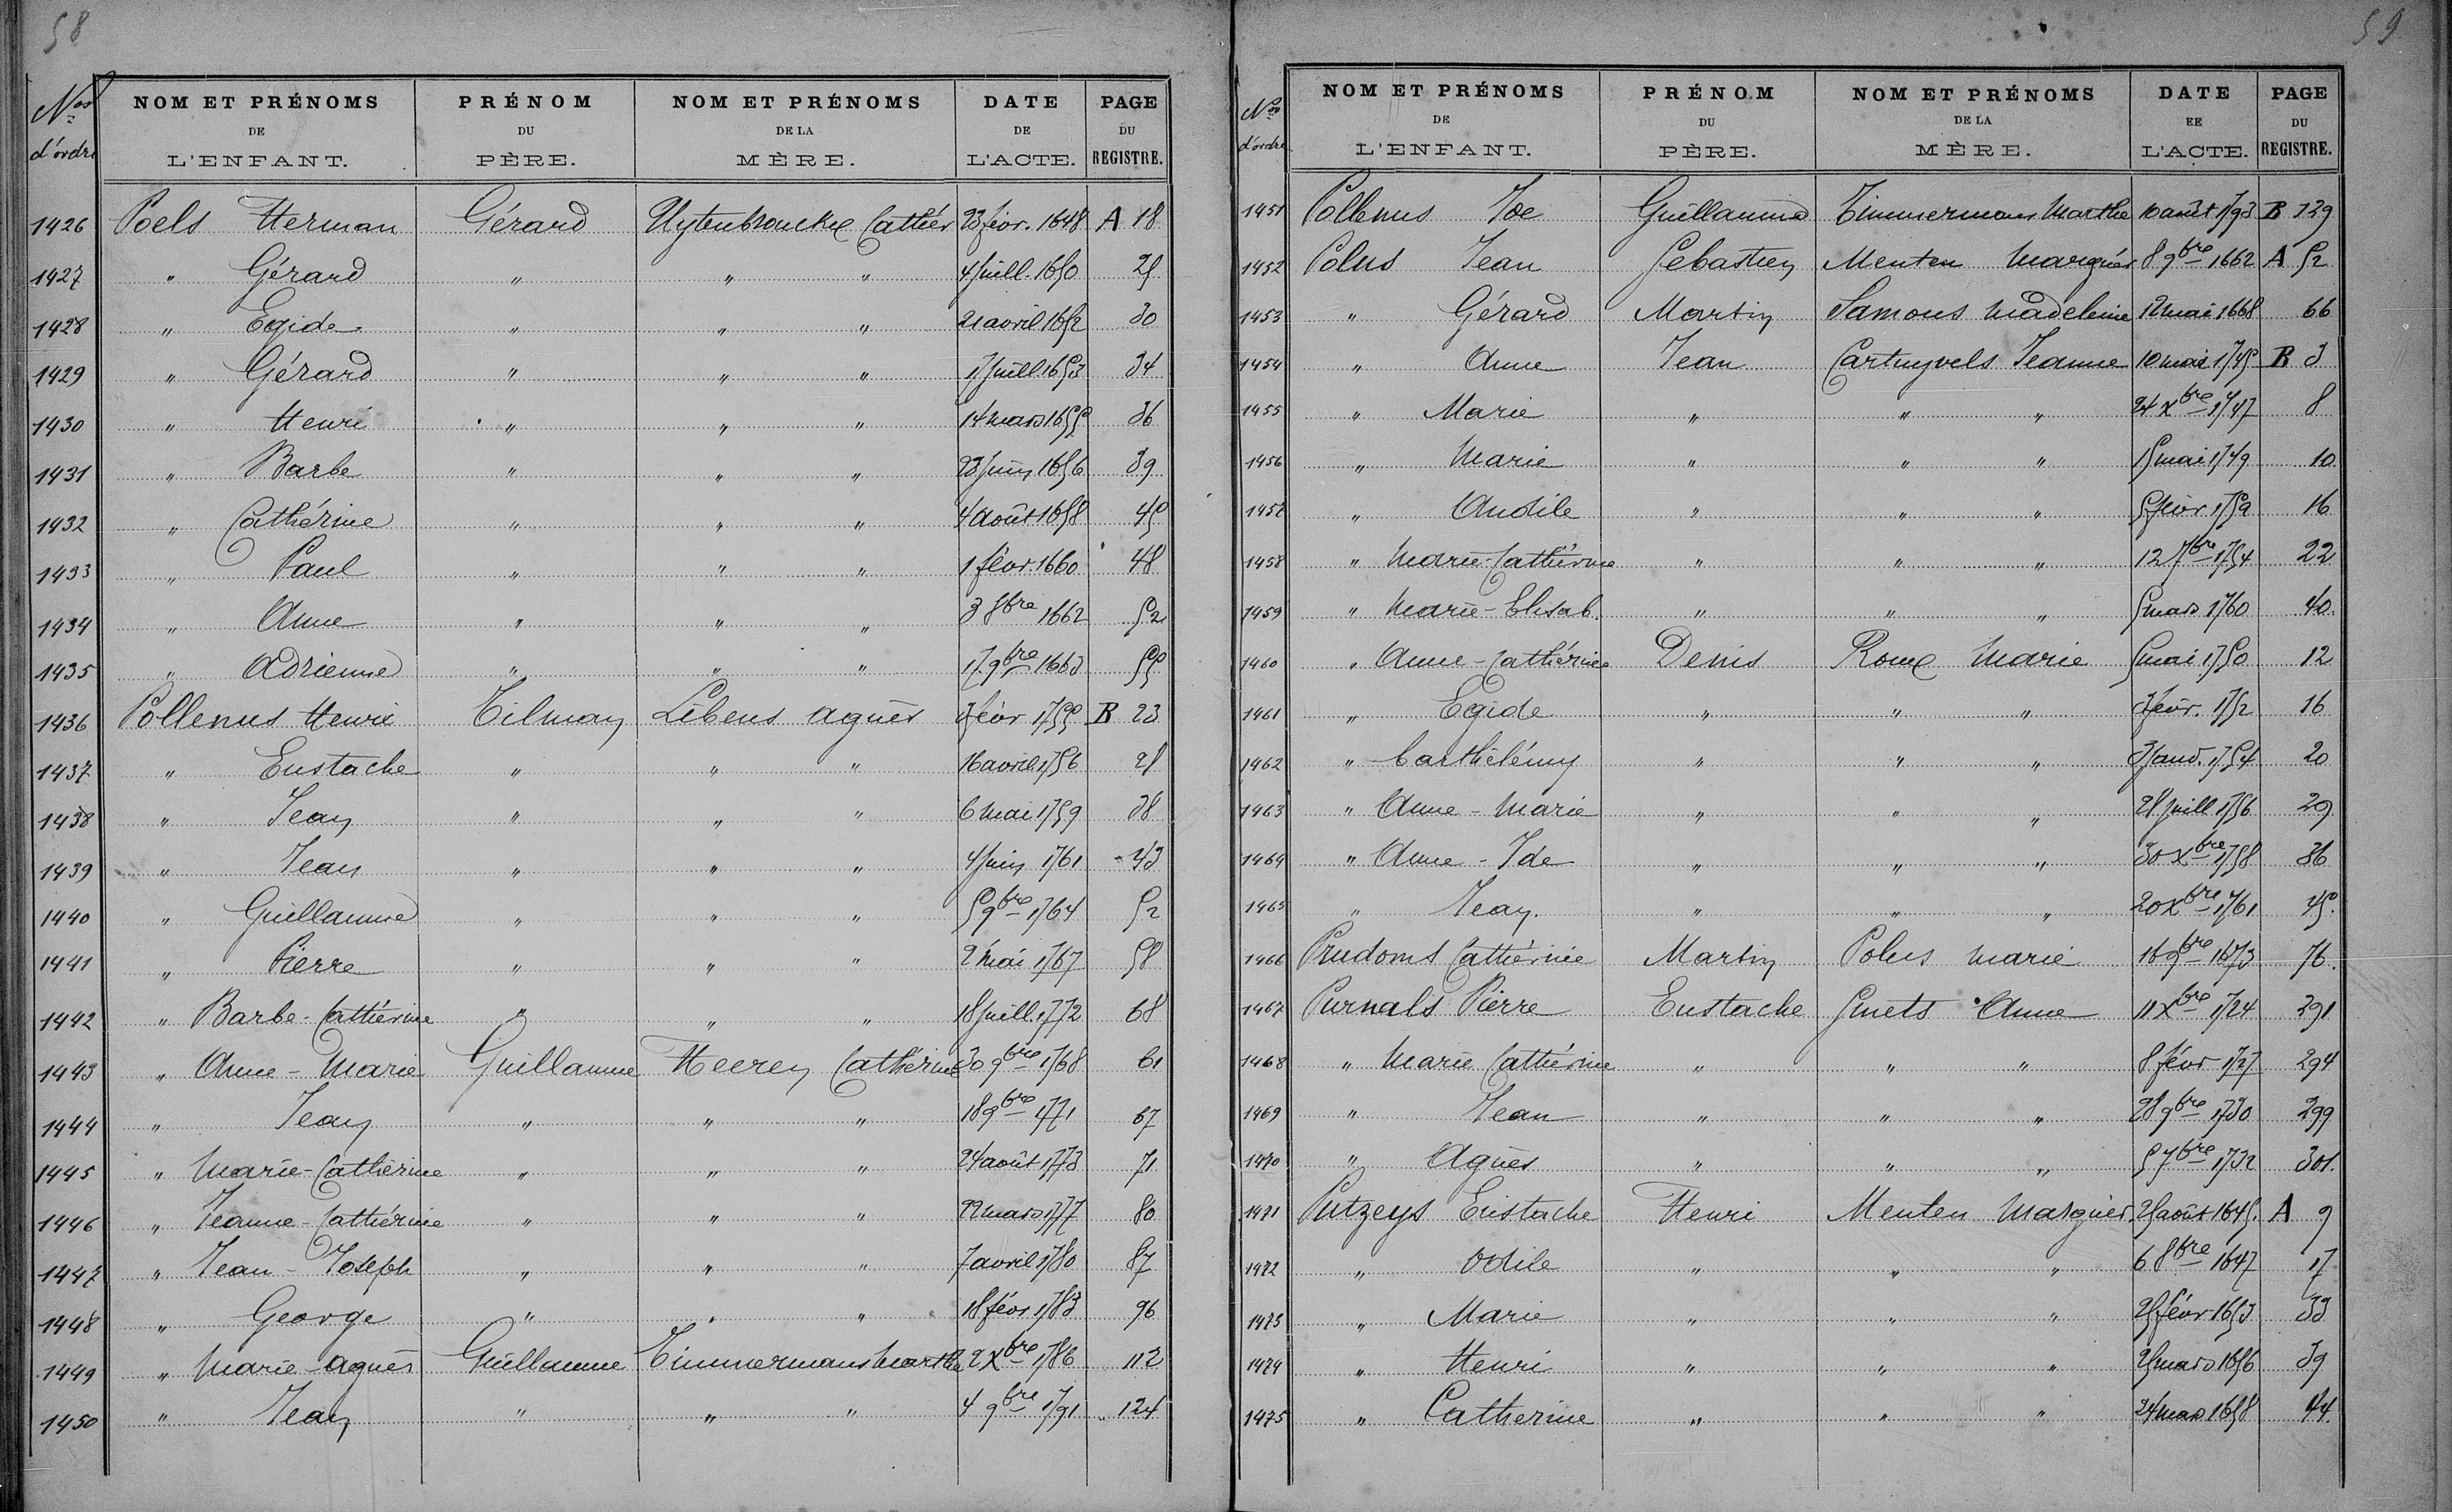 58
Nos d'ordre | NOM ET PRÉNOMS DE L'ENFANT. | PRÉNOM DU PÈRE. | NOM ET PRÉNOMS DE LA MÈRE. | DATE DE L'ACTE. | PAGE DU REGISTRE.
1426 Poels Herman Gérard Uytenbrouckx Cathér 23 févr. 1648 A 18
1427 " Gérard " " " 4 Juill. 1650 25
1428 " Egide " " " 21 avril 1652 30
1429 " Gérard " " " 1 Juill. 1653 34
1430 " Henri " " " 14 mars 1655 36
1431 " Barbe " " " 23 Juin 1656 39
1432 " Cathérine " " " 4 août 1658 45
1433 " Paul " " " 1 févr. 1660 48
1434 " Anne " " " 3 8bre 1662 52
1435 " Adrienne " " " 17 9bre 1663 55
1436 Pollenus Henri Tilman Libens agnès 3 févr 1755 B 23
1437 " Eustache " " " 16 avril 1756 28
1438 " Jean " " " 6 mai 1759 38
1439 " Jean " " " 4 Juin 1761 43
1440 " Guillaume " " " 5 9bre 1764 52
1441 " Pierre " " " 2 mai 1767 58
1442 " Barbe-Cathérine " " " 18 Juill. 1772 68
1443 " Anne-Marie Guillaume Heeren Cathérine 30 9bre 1768 61
1444 " Jean " " " 18 9bre 1771 67
1445 " Marie-Cathérine " " " 24 août 1773 71
1446 " Jeanne-Cathérine " " " 22 mars 1777 80
1447 " Jean-Joseph " " " 7 avril 1780 87
1448 " George " " " 18 févr 1783 96
1449 " Marie-agnès Guillaume Timmermans Marthe 2 Xbre 1786 112
1450 " Jean " " " 4 9bre 1791 124
59
Nos d'ordre | NOM ET PRÉNOMS DE L'ENFANT. | PRÉNOM DU PÈRE. | NOM ET PRÉNOMS DE LA MÈRE. | DATE EE L'ACTE. | PAGE DU REGISTRE.
1451 Pollenus Ide Guillaume Timmermans Marthe 10 août 1793 B 129
1452 Polus Jean Sebastien Menten Margués 8 9bre 1662 A 52
1453 " Gérard Martin Samons Madeleine 12 mai 1668 66
1454 " Anne Jean Cartuyvels Jeanne 10 mai 1745 B 3
1455 " Marie " " " 24 Xbre 1747 8
1456 " Marie " " " 15 mai 1749 10
1457 " Audile " " " 5 févr 1752 16
1458 " Marie-Cathérine " " " 12 7bre 1754 22
1459 " Marie-Elisab. " " " 5 mars 1760 40
1460 " Anne-Cathérine Denis Roux Marie 5 mai 1750 12
1461 " Egide " " " 3 févr. 1752 16
1462 " barthélémy " " " 3 Janv. 1754 20
1463 " Anne-Marie " " " 28 Juill 1756 29
1464 " Anne-Ide " " " 30 Xbre 1758 36
1465 " Jean. " " " 20 Xbre 1761 45
1466 Prudoms Cathérine Martin Polus Marie 16 9bre 1673 76
1467 Purnals Pierre Eustache Smets Anne 11 Xbre 1724 291
1468 " Marie Cathérine " " " 8 févr 1727 294
1469 " Jean " " " 28 9bre 1730 299
1470 " Agnès " " " 5 7bre 1732 301
1471 Putzeys Eustache Henri Menten Margués. 25 août 1645. A 9
1472 " Odile " " " 6 8bre 1647 17
1473 " Marie " " " 25 févr 1653 33
1474 " Henri " " " 25 mars 1656 39
1475 " Catherine " " " 24 mars 1658 44